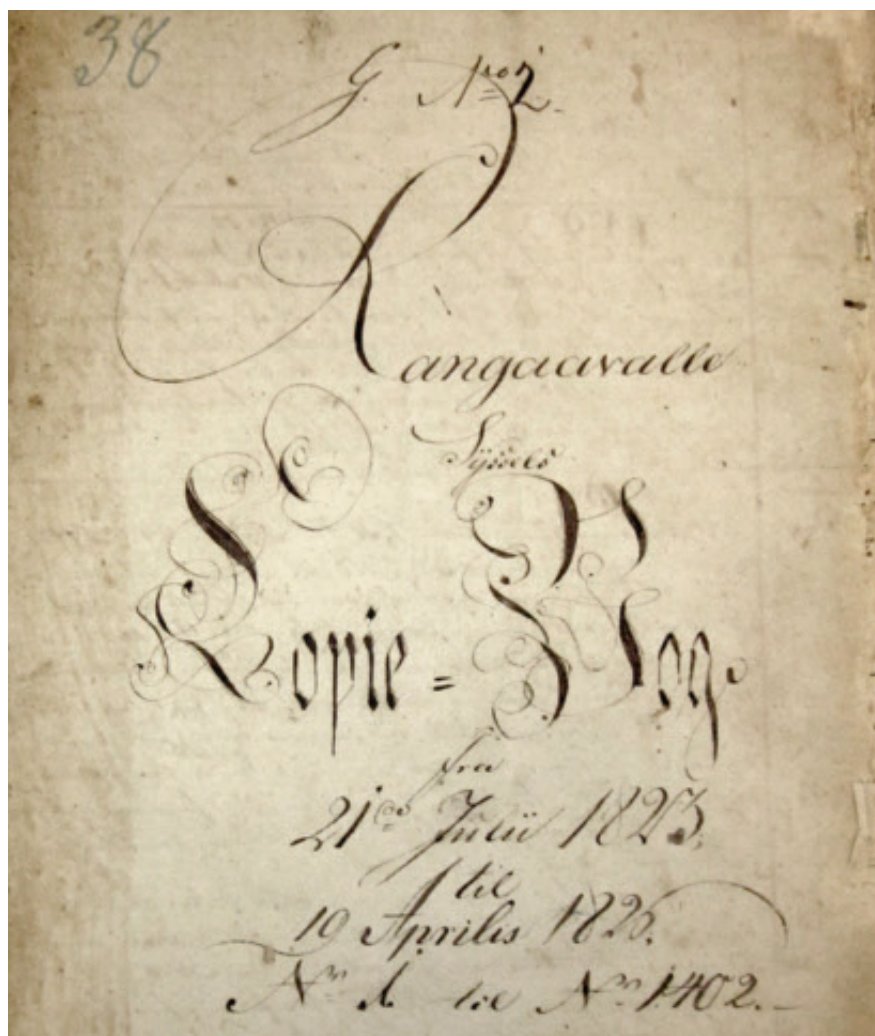 38
G. No 2.
Rangaavalle
Sÿssels
Kopie = Bog
fra
21de Julii 1823.
til
19 Aprilis 1826.
Nr. 1. til Nr. 1402.